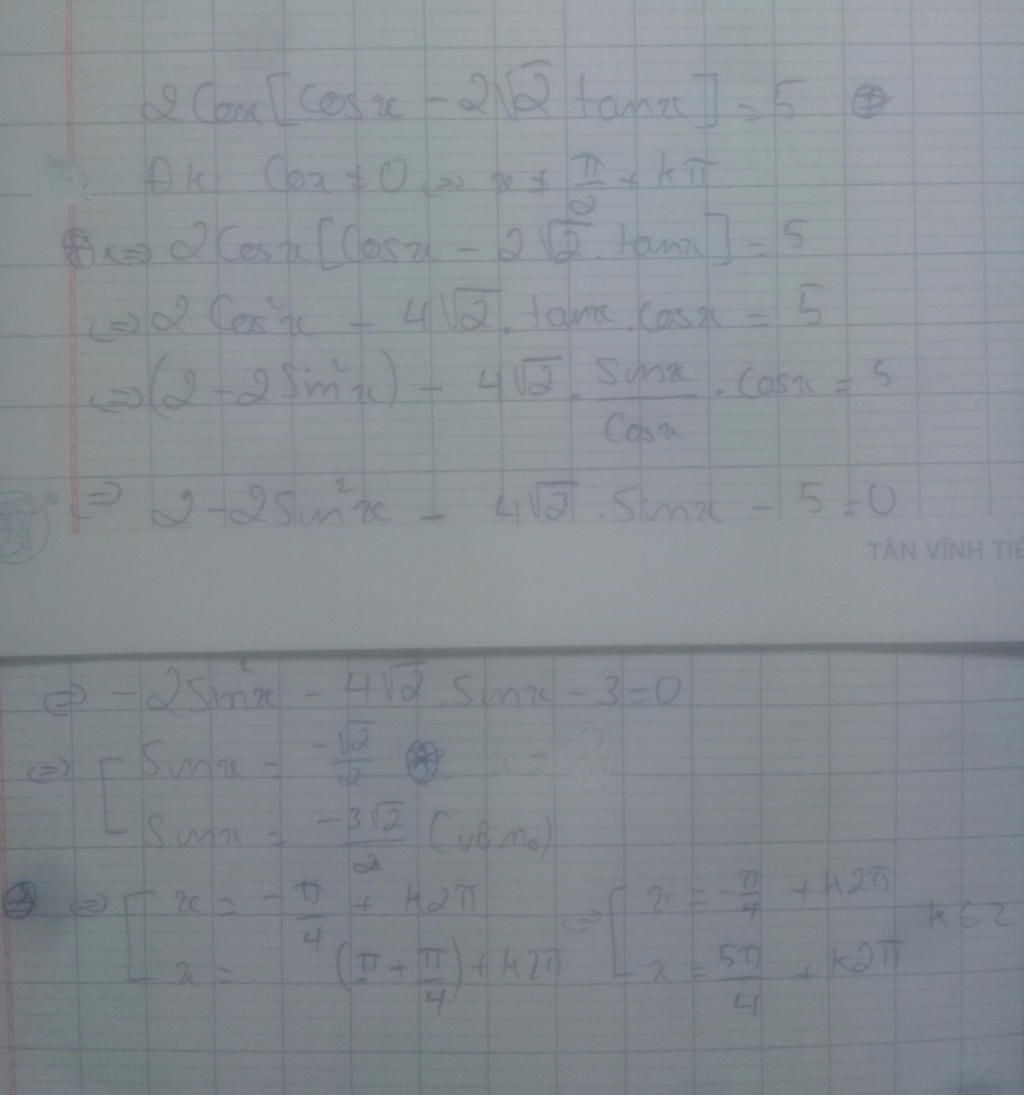 2Cosx[Cosx - 2√2 tanx] = 5 ⊛
Đk Cosx ≠ 0 ⇔ x ≠ π/2 + kπ
⊛ ⇔ 2Cosx[Cosx - 2√2 . tanx] = 5
⇔ 2Cos²x - 4√2 . tanx . cosx = 5
⇔ (2 - 2Sin²x) - 4√2 . Sinx/Cosx . cosx = 5
⇔ 2 - 2Sin²x - 4√2 . Sinx - 5 = 0
TÂN VĨNH TIẾ
⇔ -2Sin²x - 4√2 . Sinx - 3 = 0
⇔ [ Sinx = -√2/2 ⊛
Sinx = -3√2/2 (vô no)
⊛ ⇔ [ x = -π/4 + k2π ⇔ [ x = -π/4 + k2π k∈Z
x = (π + π/4) + k2π x = 5π/4 + k2π